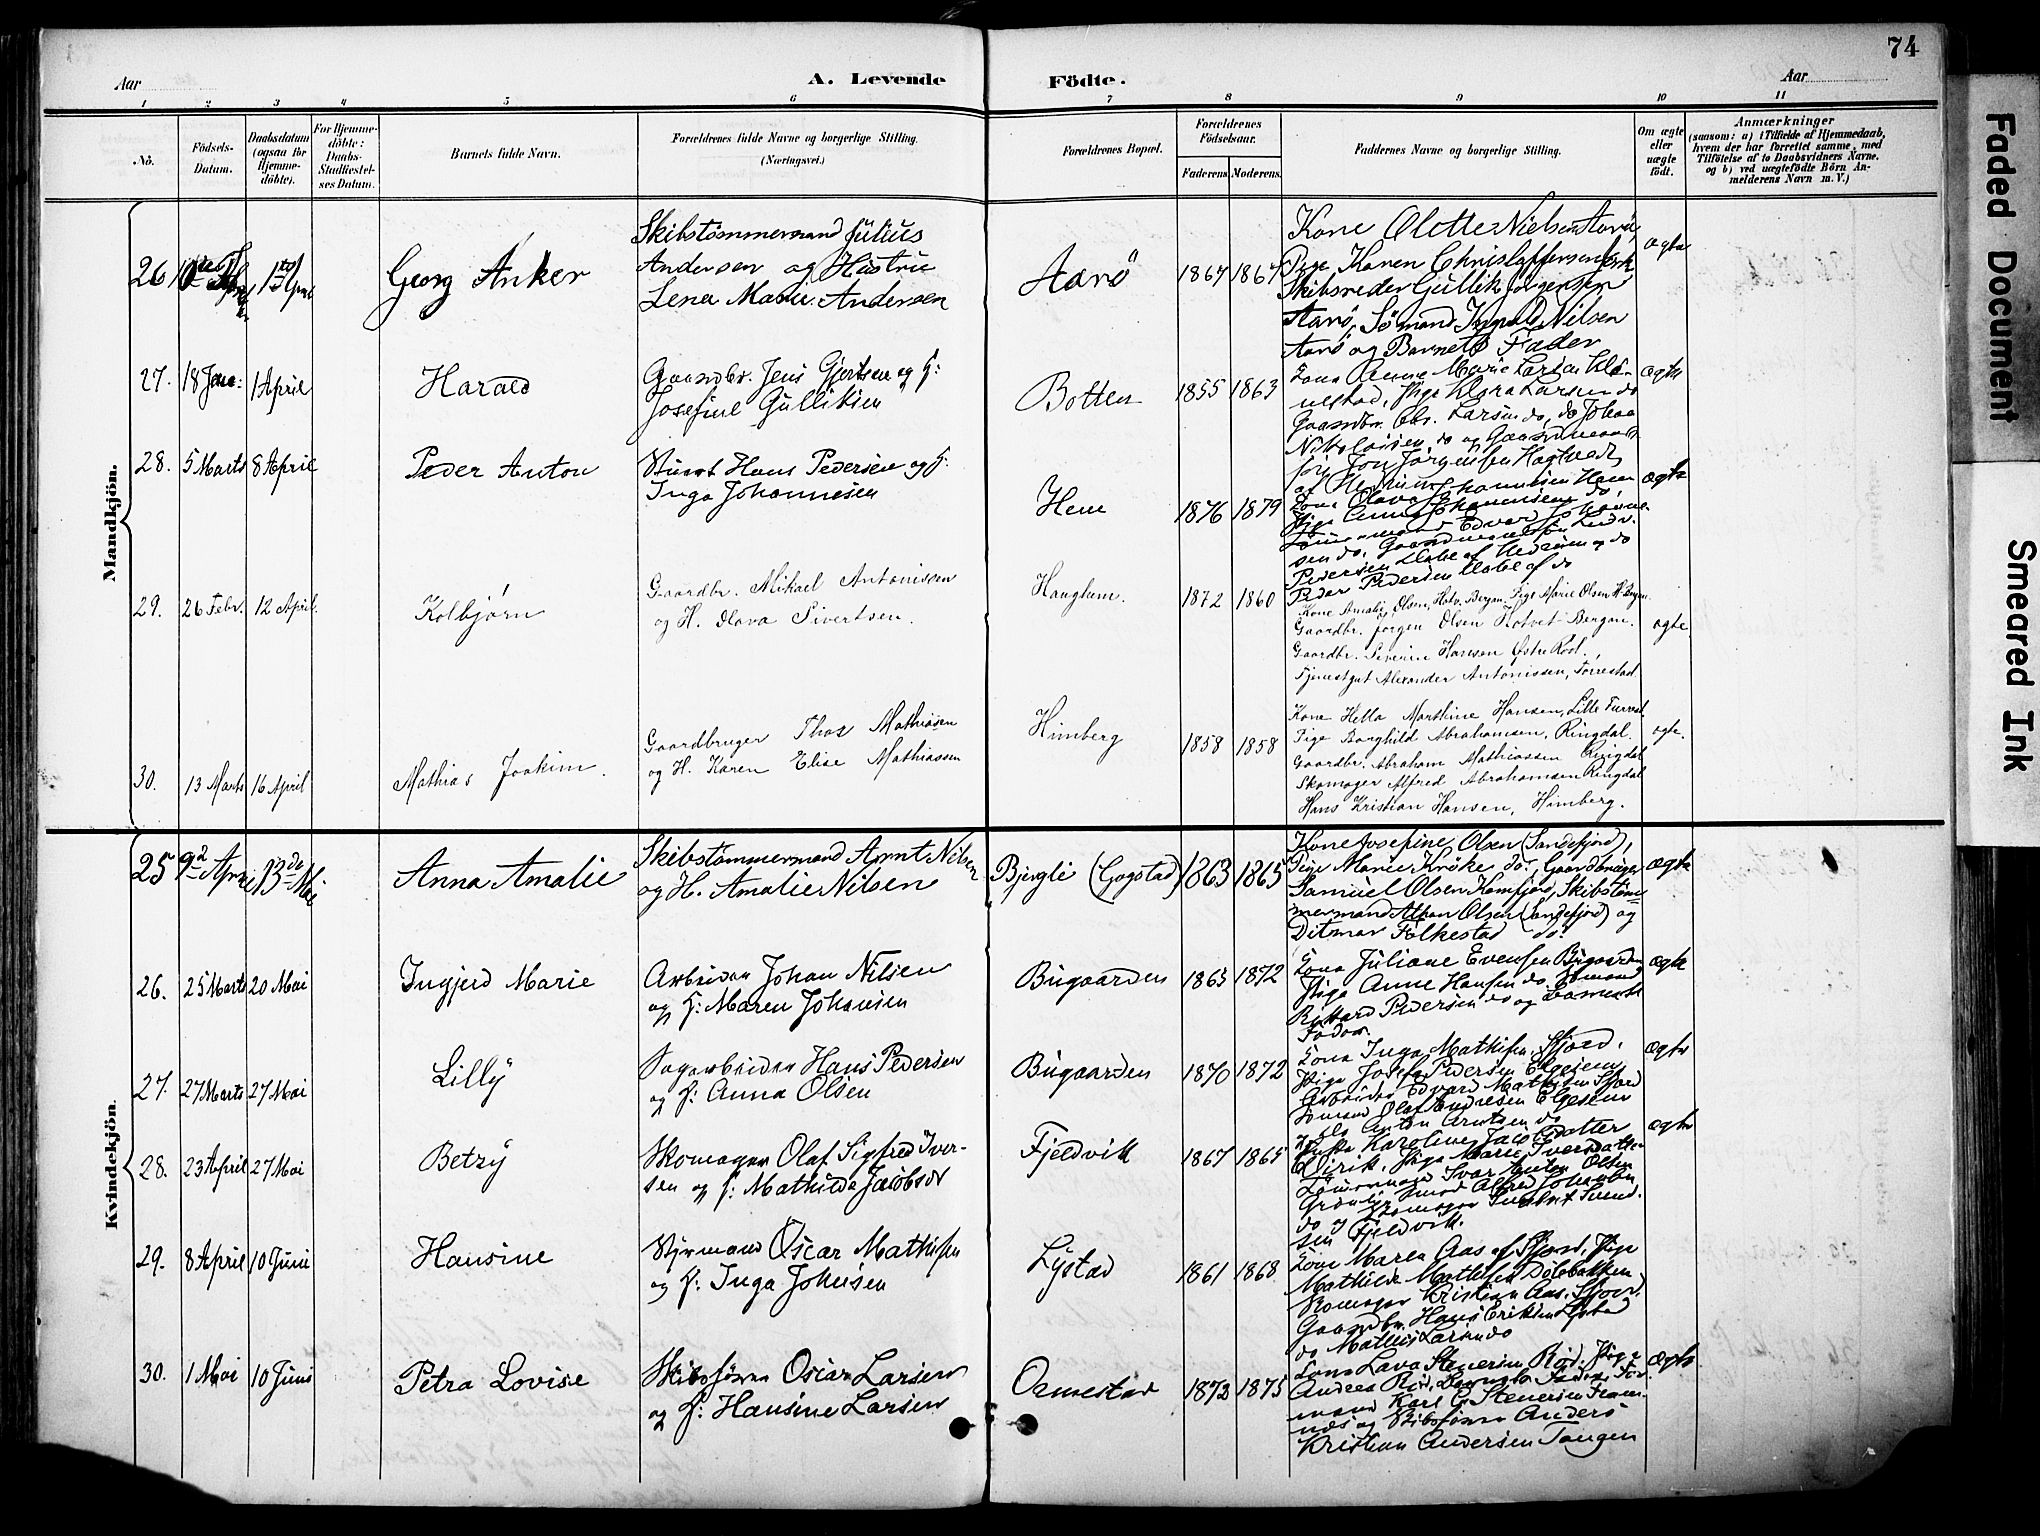 74
Aar
A. Levende Födte.
Aar
1 2 3 4 5 6 7 8 9 10 11
No.
Födsels-Datum.
Daabsdatum (ogsaa for Hjemme-döbte).
For Hjemme-döbte: Daabs-Stadfæstel-ses Datum.
Barnets fulde Navn.
Forældrenes fulde Navne og borgerlige Stilling.
(Næringsvei.)
Forældrenes Bopæl.
Forældrenes Födselsaar.
Faderens. Moderens.
Faddernes Navne og borgerlige Stilling.
Om ægte eller uægte födt.
Anmærkninger
(saasom: a) i Tilfælde af Hjemmedaab, hvem der har forrettet samme, med Tilföielse af to Daabsvidners Navne, og b) ved uægtefödte Börn An-melderens Navn m. V.)
Mandkjön.
26 1ste April Georg Anker
Skibstømmermand Julius
Andersen og Hustru
Lena Marie Andersen
Aarö 1867 1867
Kone Olette Nielsen Aarö,
Pige Karen Christoffersen
Skibsreder Gullik Jørgensen
Aarö, Sömand Nilsen
Aarö og Barnets Fader
ægte
27. 18 Jan: 1 April Harald
Gaardbr. Jens Gjertsen og H:
Josefine Gulliksen
Botten 1855 1863
Kona Anne Marie Larsen
Pige Klara Larsen do
Gaardbr. Chr. Larsen do, do Johan
Nikolaisen do og Gaardmand
ægte
28. 5 Marts 8 April Peder Anton
Hans Pedersen og H:
Inga Johannesen
Hem 1876 1879
Jørgensen
Kona Olava Johannesen Hem
Pige Anna Johannesen do,
Edvard Johanne-
sen do, Gaardmand
Pedersen og do
Peder Pedersen af do
ægte
29. 26 Febr. 12 April. Kolbjørn
Gaardbr. Mikael Antonissen
og H. Olava Sivertsen.
Haughem. 1872 1860
Kone Amalie Olsen, Hotv. Bergan. Pige Marie Olsen H. Bergan.
Gaardbr. Jørgen Olsen Hotvet Bergan.
Gaardbr. Severin Hansen Østre Rød.
Tjenestgut Alexander Antonissen, Torrestad.
ægte.
30. 13 Marts 16 April Mathias Joakim.
Gaardbruger Thos Mathiasen
og H. Karen Elise Mathiassen
Himberg 1858 1858
Kone Hella Marthine Hansen, Lille
Pige Borghild Abrahamsen, Ringdal.
Gaardbr. Abraham Mathiassen Ringdal
Skomager Alfred Abrahamsen Ringdal
Hans Kristian Hansen, Himberg.
ægte.
Kvindekjön.
25 April 13de Mai Anna Amalie
Skibstømmermand Arnt Nilsen
og H. Amalie Nilsen
Bjergli (Gogstad) 1863 1865
Kone Josefine Olsen (Sandefjord),
Pige Marie do., Gaardbruger
Samuel Olsen Kamfjord, Skibstøm-
mermand Olsen (Sandefjord) og
Ditmar Falkestad do.
ægte
26. 25 Marts 20 Mai Ingjerd Marie
Arbeider Johan Nilsen
og H: Maren Johansen
Bugaarden 1865 1872
Kona Juliane Evensen Bugaarden
Pige Anne Hansen do. Sømand
Rikard Pedersen do og Barnets
Fader.
ægte
27. 27 Marts 27 Mai Lilly
Sagarbeider Hans Pedersen
og H: Anna Olsen
Bugaarden 1870 1872
Kona Inga Mathisen Fjord,
Pige Josefa Pedersen Elgesem
Arbeider Edvard Mathisen Fjord
Sømand Olaf Andresen Elgesem
og do Anton Arntsen do
ægte
28. 23 April 27 Mai Betzy
Skomager Olaf Sigfred Iver-
sen og H: Mathilde Jacobsdr
Fjeldvik 1867 1865
Karoline Jacobsdatter
Virik, Pige Marie Iversdatter
Tømmermand Ivar Anton Olsen
Grønli, Smed Alfred Johansen
do og Skomager Svend-
sen Fjeldvik.
ægte
29. 8 April 10 Juni Hansine
Styrmand Oscar Mathisen
og H: Inga Johnsen
Lystad 1861 1868
Kone Maren Aas af Fjord, Pige
Mathilde Mathisen Dølebakken
Skomager Kristian Aas. Fjord,
Gaardbr. Hans Eriksen Lystad
do Mathis Larsen do
30. 1 Mai 10 Juni Petra Lovise
Skibsfører Oscar Larsen
og H: Hansine Larsen
Ormestad 1872 1875
Kona Lava Stenersen Rød, Pige
Andrea Rød, Barnets Fader,
Karl G. Stenersen Fram-
næs og Skibsfører Anders
Kristian Andersen Tangen
ægte
Faded Document
Smeared Ink